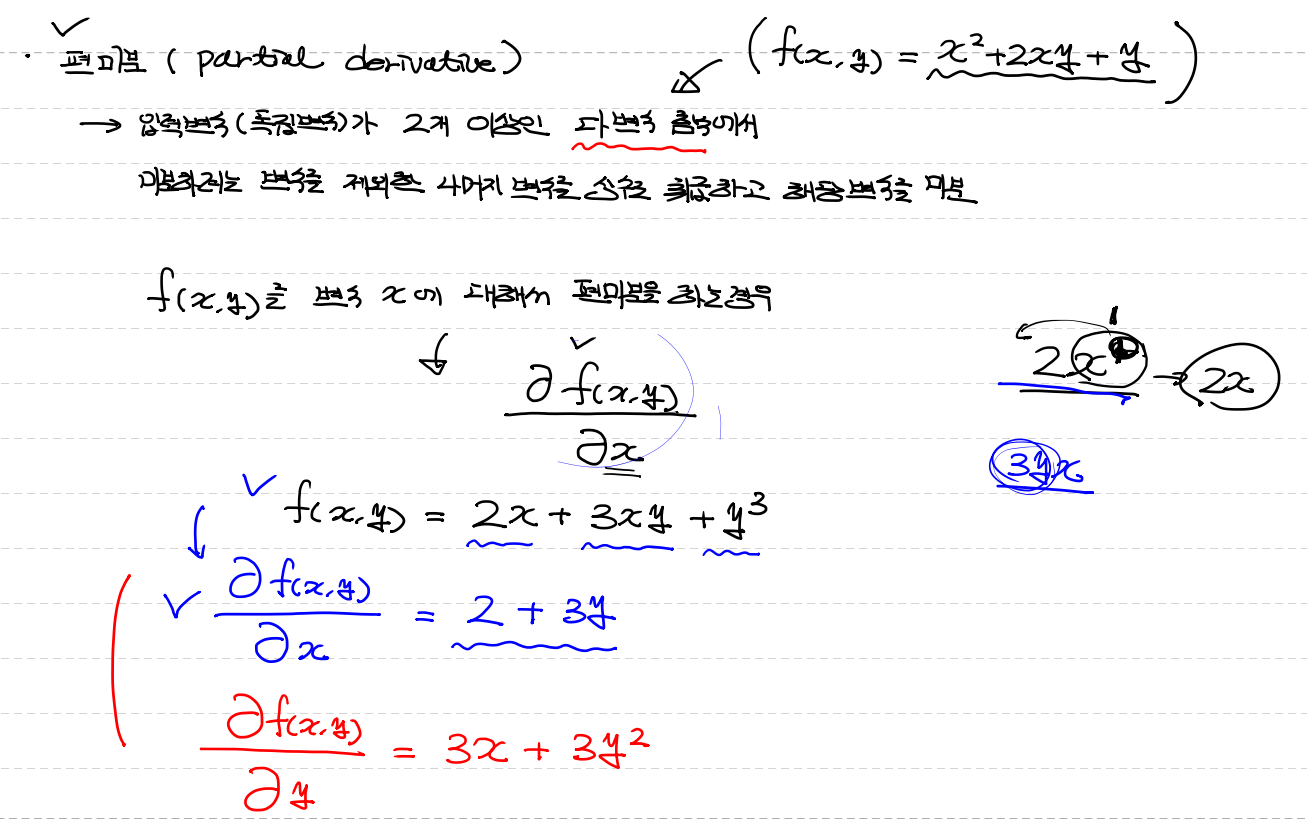 · 편미분 ( partial derivative ) ( f(x,y) = x²+2xy + y )
→ 입력변수(독립변수)가 2개 이상인 다변수 함수에서
미분하려는 변수를 제외한 나머지 변수를 상수로 취급하고 해당변수를 미분
f(x,y)를 변수 x에 대해서 편미분을 하는경우
∂f(x,y) / ∂x
2x → 2x
3yx
f(x,y) = 2x + 3xy + y³
∂f(x,y) / ∂x = 2 + 3y
∂f(x,y) / ∂y = 3x + 3y²